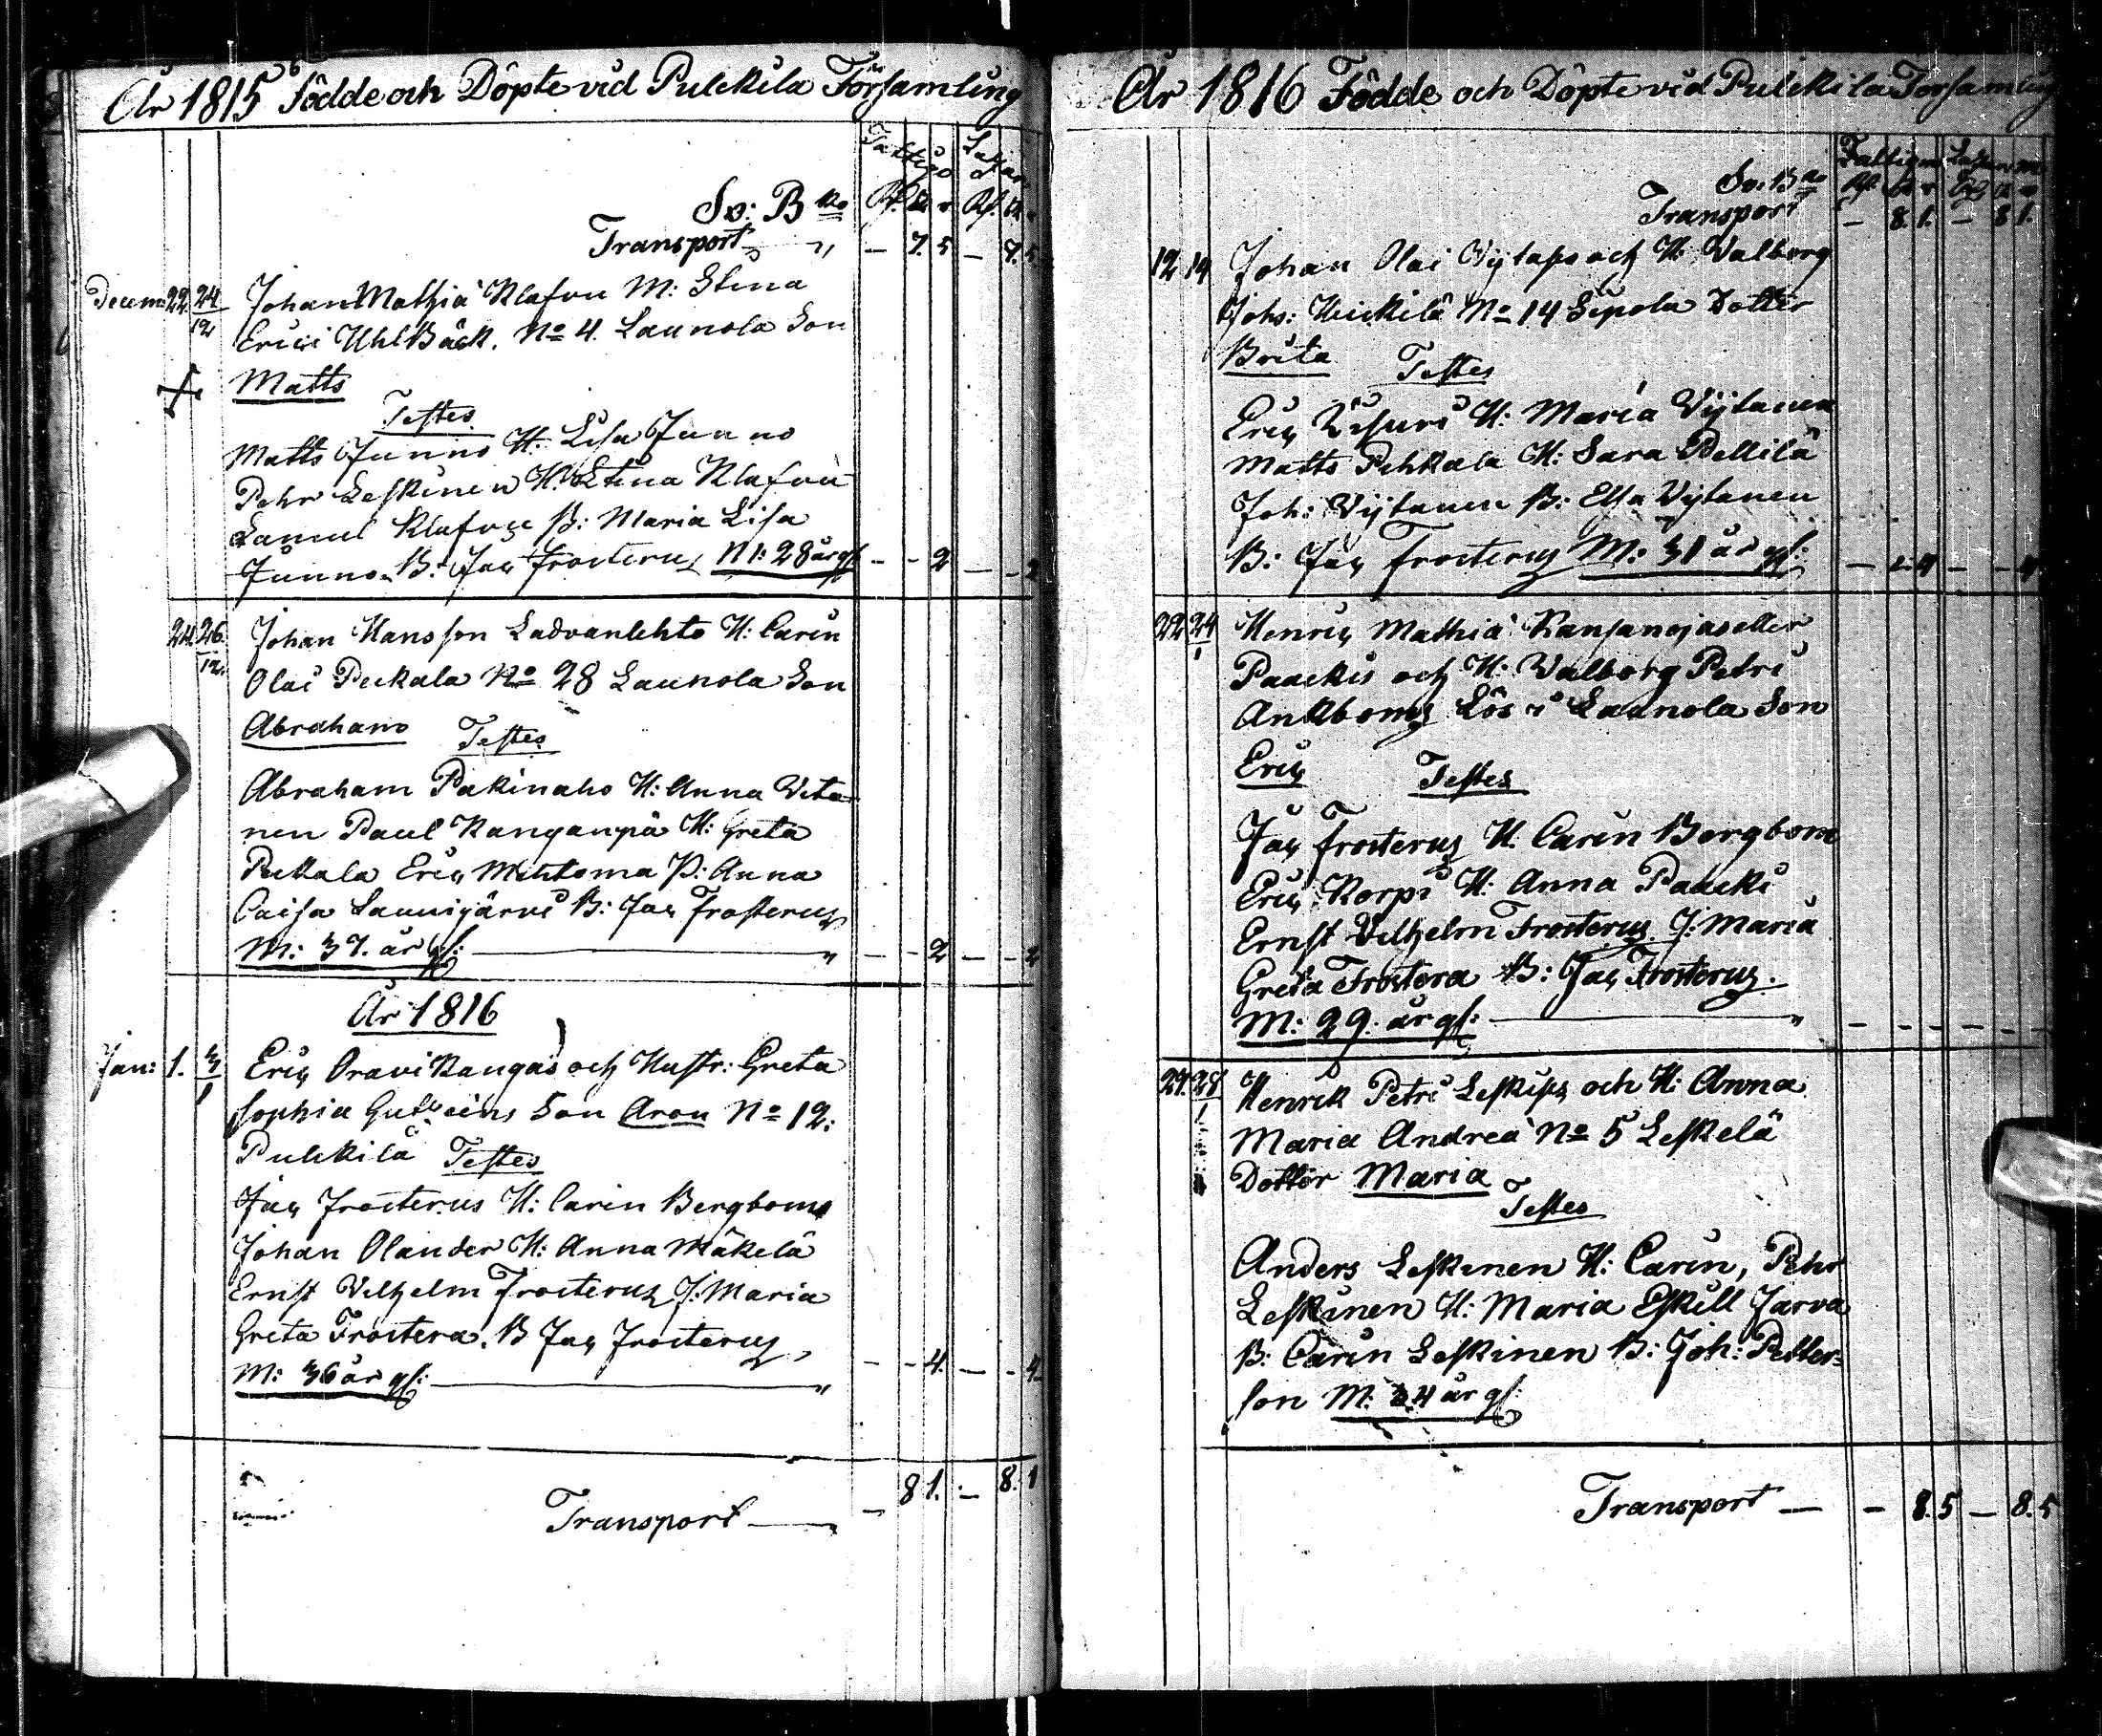 År 1815 Födde och Döpte vid Pulckila Församling
6
Sv: B ko
Transport " — 7. 5 — 7. 5
Decem: 22. 24/12 Johan Mathiæ Klafvu M: Stina
Erici Uhlbäck. No 4. Launola Son
Matts
Testes
Matts Junno H: Lisa Junno
Pehr Leskinen H: Stina Klafvu
Samuel Klafvu B: Maria Lisa
Junno. B: Jac Frosterus M: 28 år gl. - - 2 — - 2
24. 26/12. Johan Hansson Ladvanlehto H: Carin
Olai Peckala No 28 Launola Son
Abraham Testes
Abraham Pakinaho H: Anna Vita-
nen Paul Kanganpä H: Greta
Pekala Eric Mehtoma P: Anna
Caisa Launijärvi B: Jac Frosterus
M: 37. år gl: " — - 2 — - 2
År 1816
Jan: 1. 3/1 Eric Oravikangas och Hustr: Greta
Sophia Son Aron No 12.
Pulckila Testes
Jac Frosterus H: Carin Bergbom
Johan Olander H: Anna Mäkelä
Ernst Vilhelm Frosterus J: Maria
Greta Frostera. B Jac Frosterus,
M: 36 år gl: " — - 4. — - 4
Transport — — 8 1. — 8. 1
År 1816 Födde och Döpte vid Pulckila Församling
Sv: B ko
Transport — 8. 1. — 8 1.
12 14 Johan Olai och H: Valborg
Johs: Heickilä No 14 Sipola Dotter
Brita Testes
Eric Visuri H: Maria Vijtanen
Matts Pehkala H: Sara Pellilä
Joh: Vijtanen B: Elsa Vijtanen
B: Jac Frosterus M: 31 år gl:
22. 24/1 Henric Mathiæ Kansanoja eller
Paacki och H: Valborg Petri
Ankbom Lös i Launola Son
Eric Testes
Jac Frosterus H: Carin Bergbom
Eric Korpi H: Anna Paacki
Ernst Vilhelm Frosterus J: Maria
Greta Frostera B: Jac Frosterus.
M: 29. år gl: " — - - - - -
27. 28/1 Henrik Petri och H: Anna
Maria Andreæ No 5 Leskelä
Dotter Maria
Testes
Anders Leskinen H: Carin, Pehr
Leskinen H: Maria Eskill Jarva
B: Carin Leskinen B: Joh: Petter-
son M: 34 år gl:
Transport — — 8. 5 — 8. 5